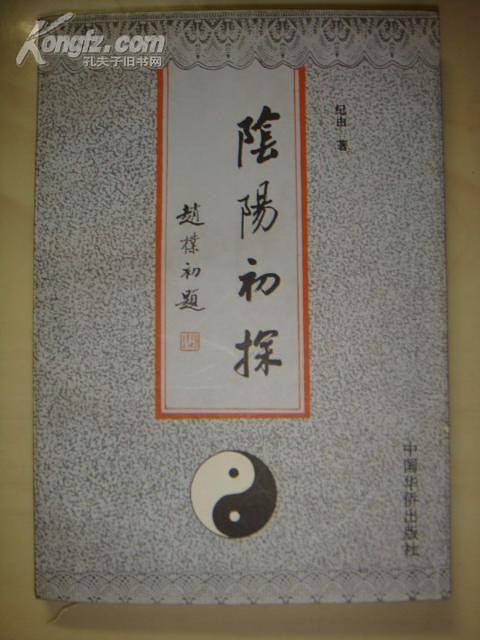 Kongfz.com
孔夫子旧书网
纪由 著
陰陽初探
趙樸初題
中国华侨出版社